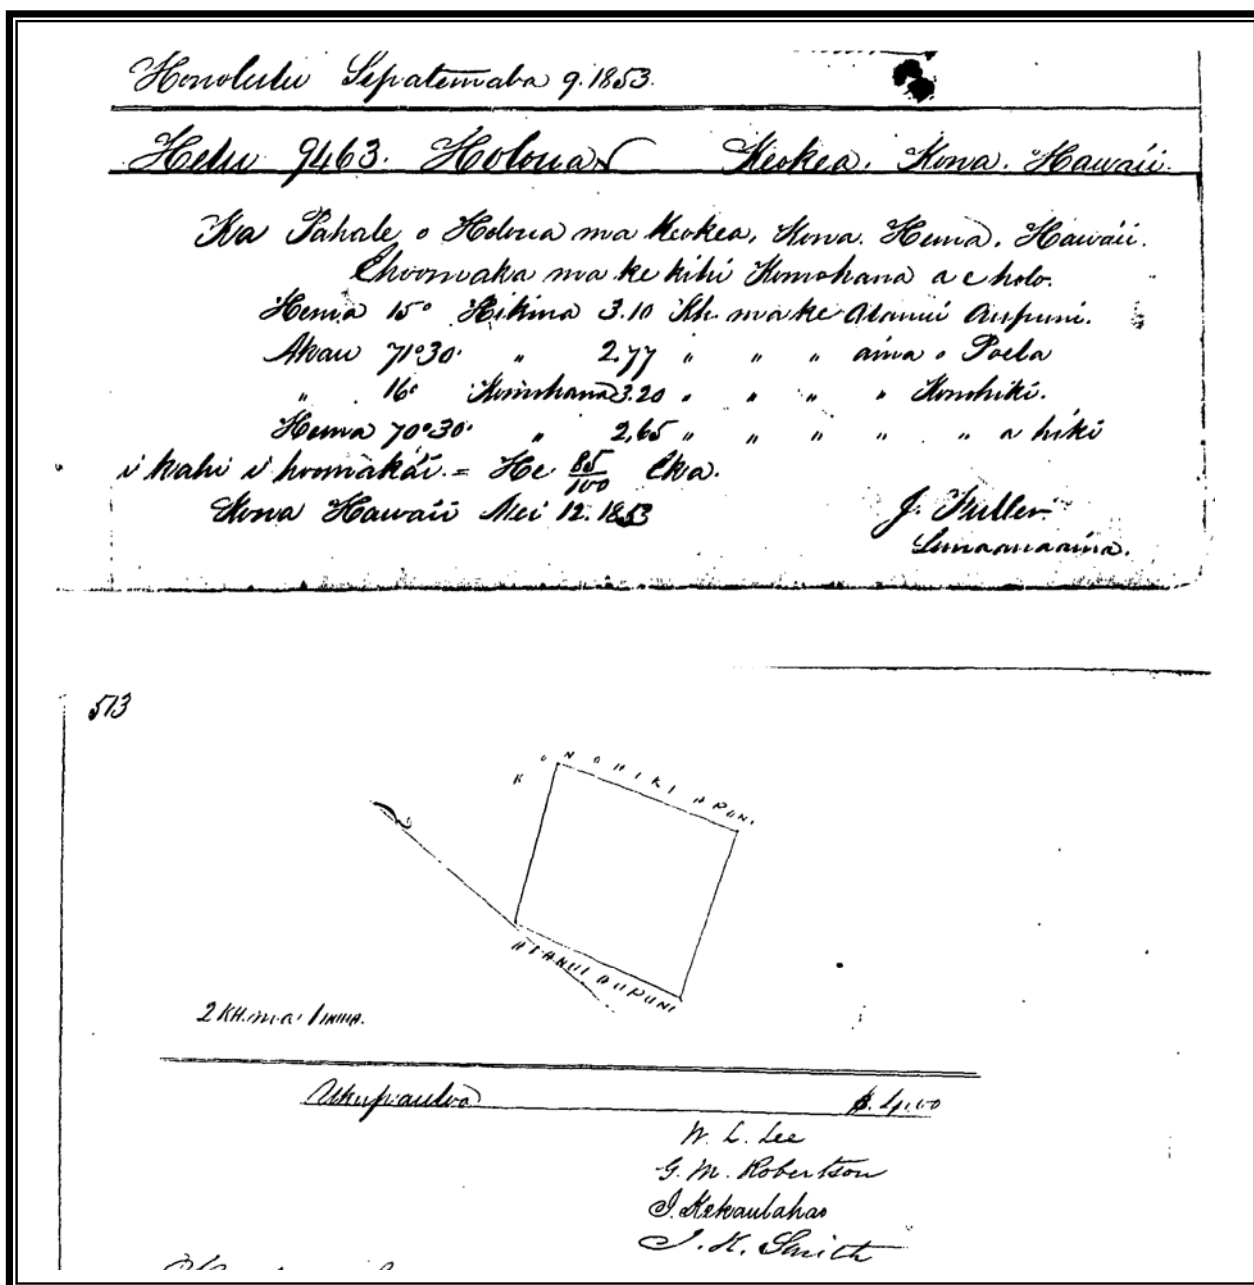 Honolulu Sepatemaba 9. 1853.
Helu 9463. Holoua Keokea. Kona. Hawaii.
Ka Pahale o Holoua ma Keokea, Kona. Hema. Hawaii.
Ehoomaka ma ke kihi Komohana a e holo.
Hema 15° Hikina 3.10 Kh. ma ke Alanui Aupuni.
Akau 71°30' " 2,77 " " " aina o Poela
" 16° Komohana 3.20 " " " " Konohiki.
Hema 70°30' " 2,65 " " " " " a hiki
i kahi i hoomakai. = He 85/100 Eka.
Kona Hawaii Mei 12. 1853 J. Fuller
Lunaanaaina.
513
KONOHIKI APUNI
ALANUI AUPUNI
2 KH. ma 1 INIHA.
Ukupauloa $. 4,00
W. L. Lee
G. M. Robertson
J. Kekaulahao
J. K. Smith